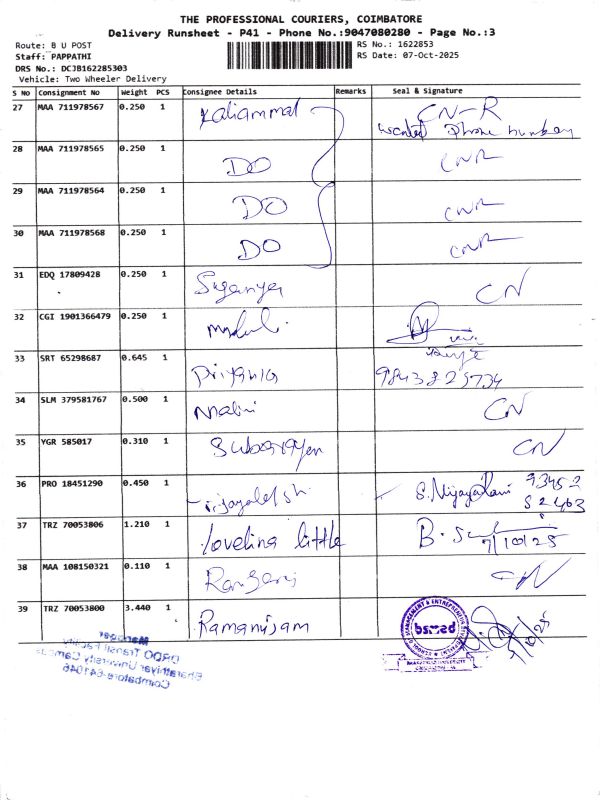 THE PROFESSIONAL COURIERS, COIMBATORE
Delivery Runsheet - P41 - Phone No.:9047080280 - Page No.:3
Route: B U POST
RS No.: 1622853
Staff: PAPPATHI
RS Date: 07-Oct-2025
DRS No.: DCJB162285303
Vehicle: Two Wheeler Delivery
S No Consignment No Weight PCS Consignee Details Remarks Seal & Signature
27 MAA 711978567 0.250 1 Kaliammal CN-R
wanted phone number
28 MAA 711978565 0.250 1 DO CNR
29 MAA 711978564 0.250 1 DO CNR
30 MAA 711978568 0.250 1 DO CNR
31 EDQ 17809428 0.250 1 Suganya CN
32 CGI 1901366479 0.250 1
33 SRT 65298687 0.645 1 Priyanka 9843825734
34 SLM 379581767 0.500 1 Malini CN
35 YGR 585017 0.310 1 CN
36 PRO 18451290 0.450 1 S. Vijayarani 93452
52463
37 TRZ 70053806 1.210 1 lovelina little B.
7/10/25
38 MAA 108150321 0.110 1 CN
39 TRZ 70053800 3.440 1 Ramanujam
bsmed
Manager
DRDO Transit Facility
Bharathiyar University Campus
Coimbatore-641046